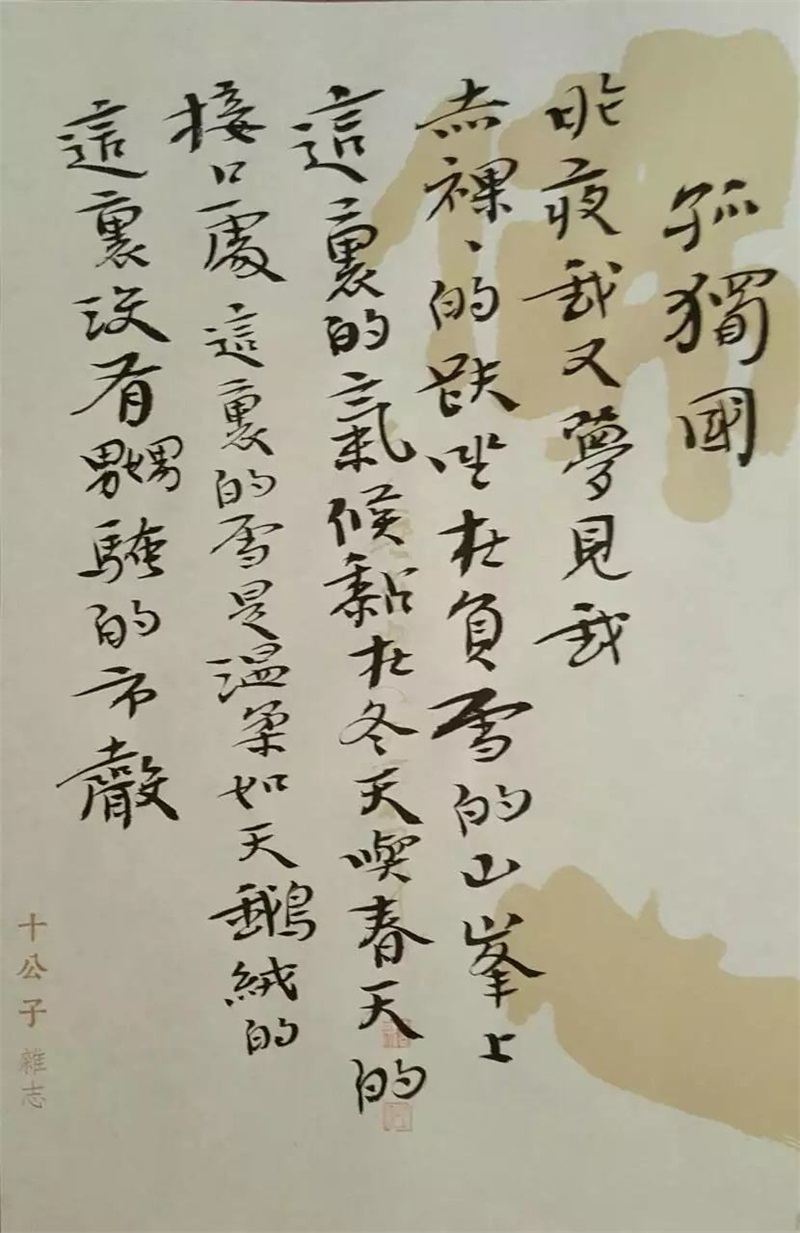 孤獨國
昨夜我又夢見我
赤裸、的趺坐在負雪的山峯上
這裏的氣候黏在冬天喫春天的
接口處 這裏的雪是溫柔如天鵝絨的
這裏沒有嬲騷的市聲
十公子 雜志